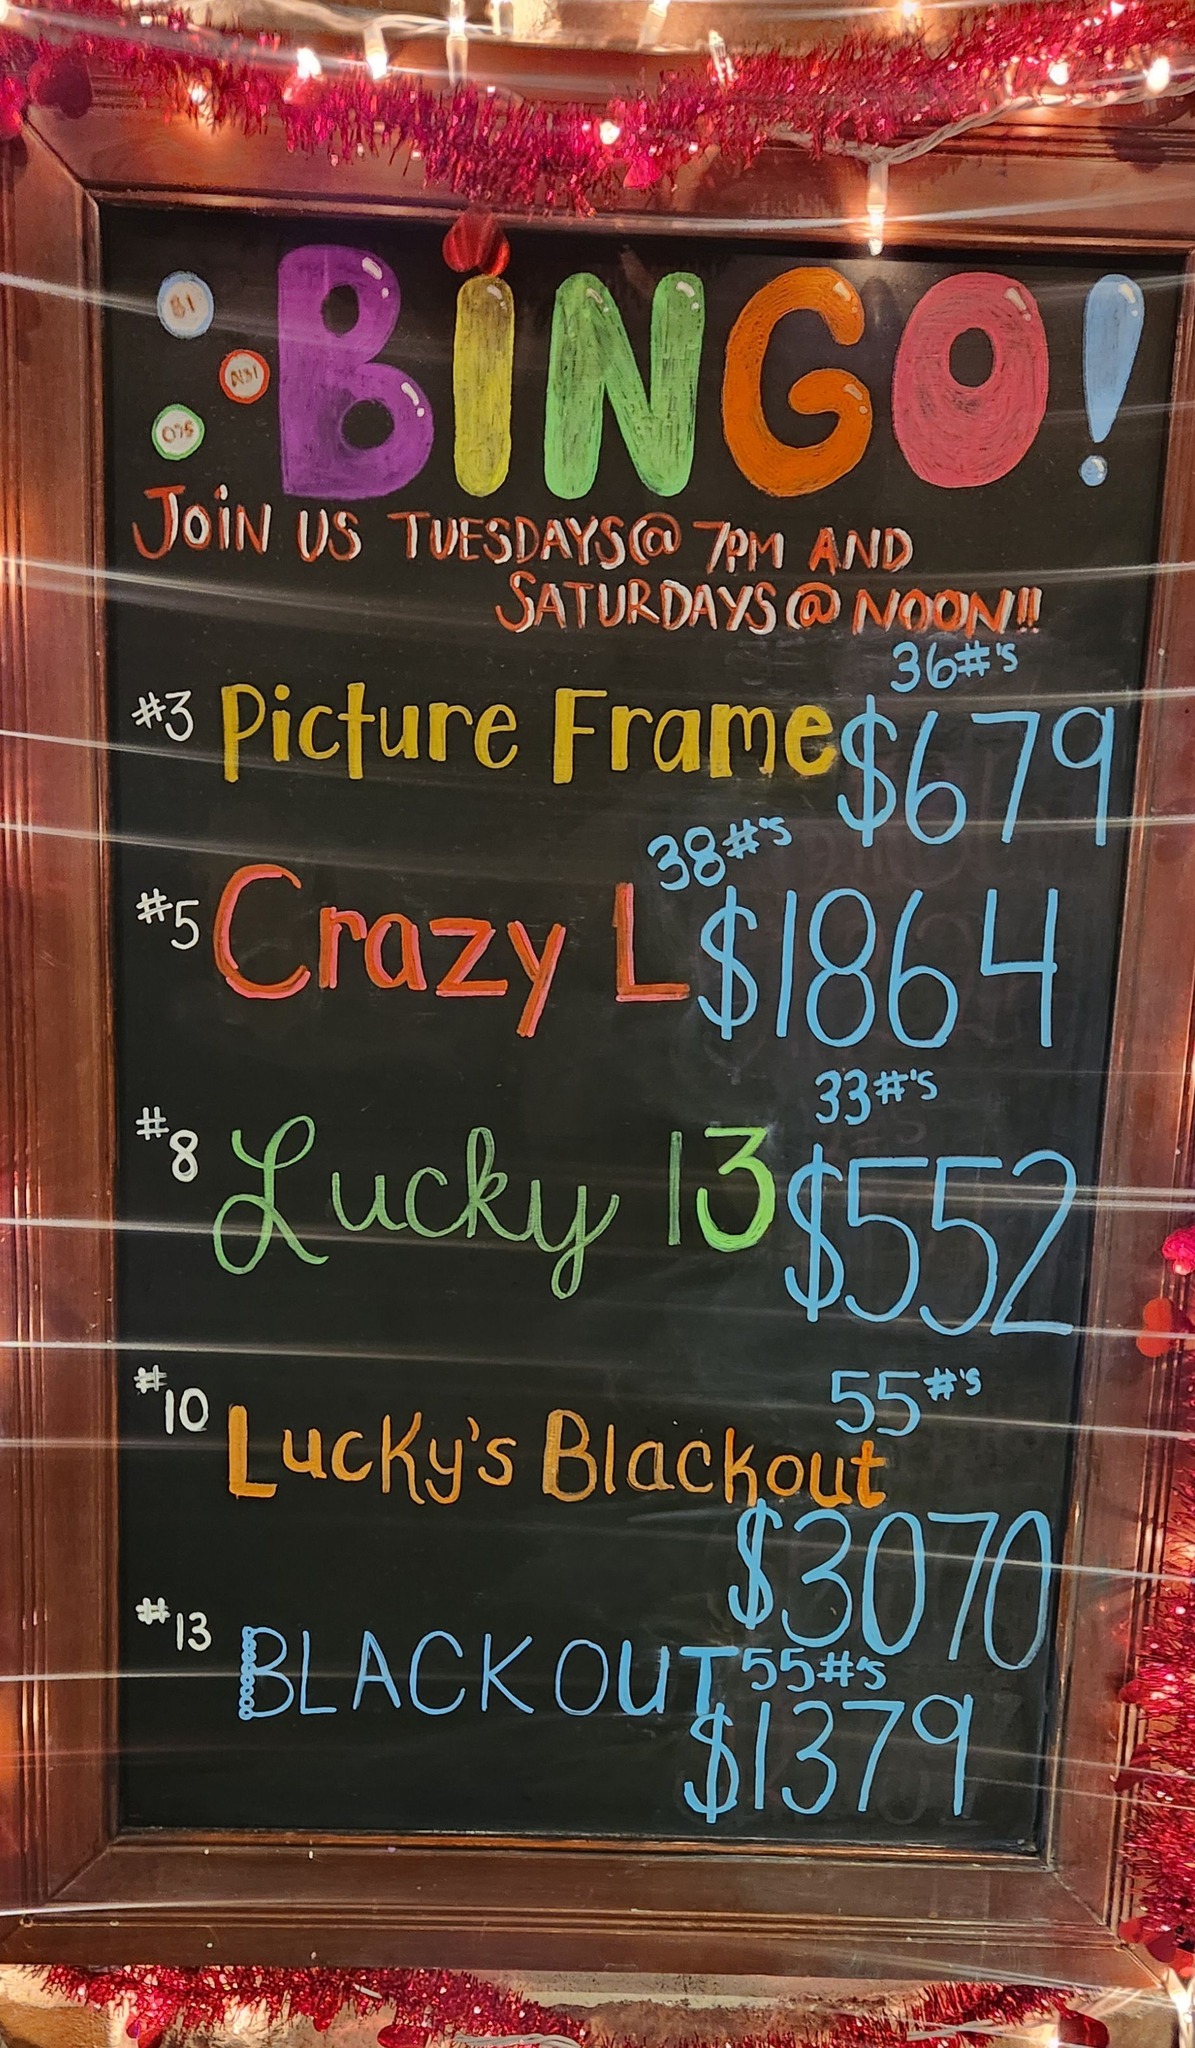 B1
N31
O75
BiNGO!
JOiN US TUESDAYS@ 7PM AND
SATURDAYS @ NOON!!!
36#'s
#3 Picture Frame $679
38#'s
#5 Crazy L $1864
33#'s
#8 Lucky 13 $552
55#'s
#10 Lucky's Blackout
$3070
#13 BLACKOUT 55#'s
$1379